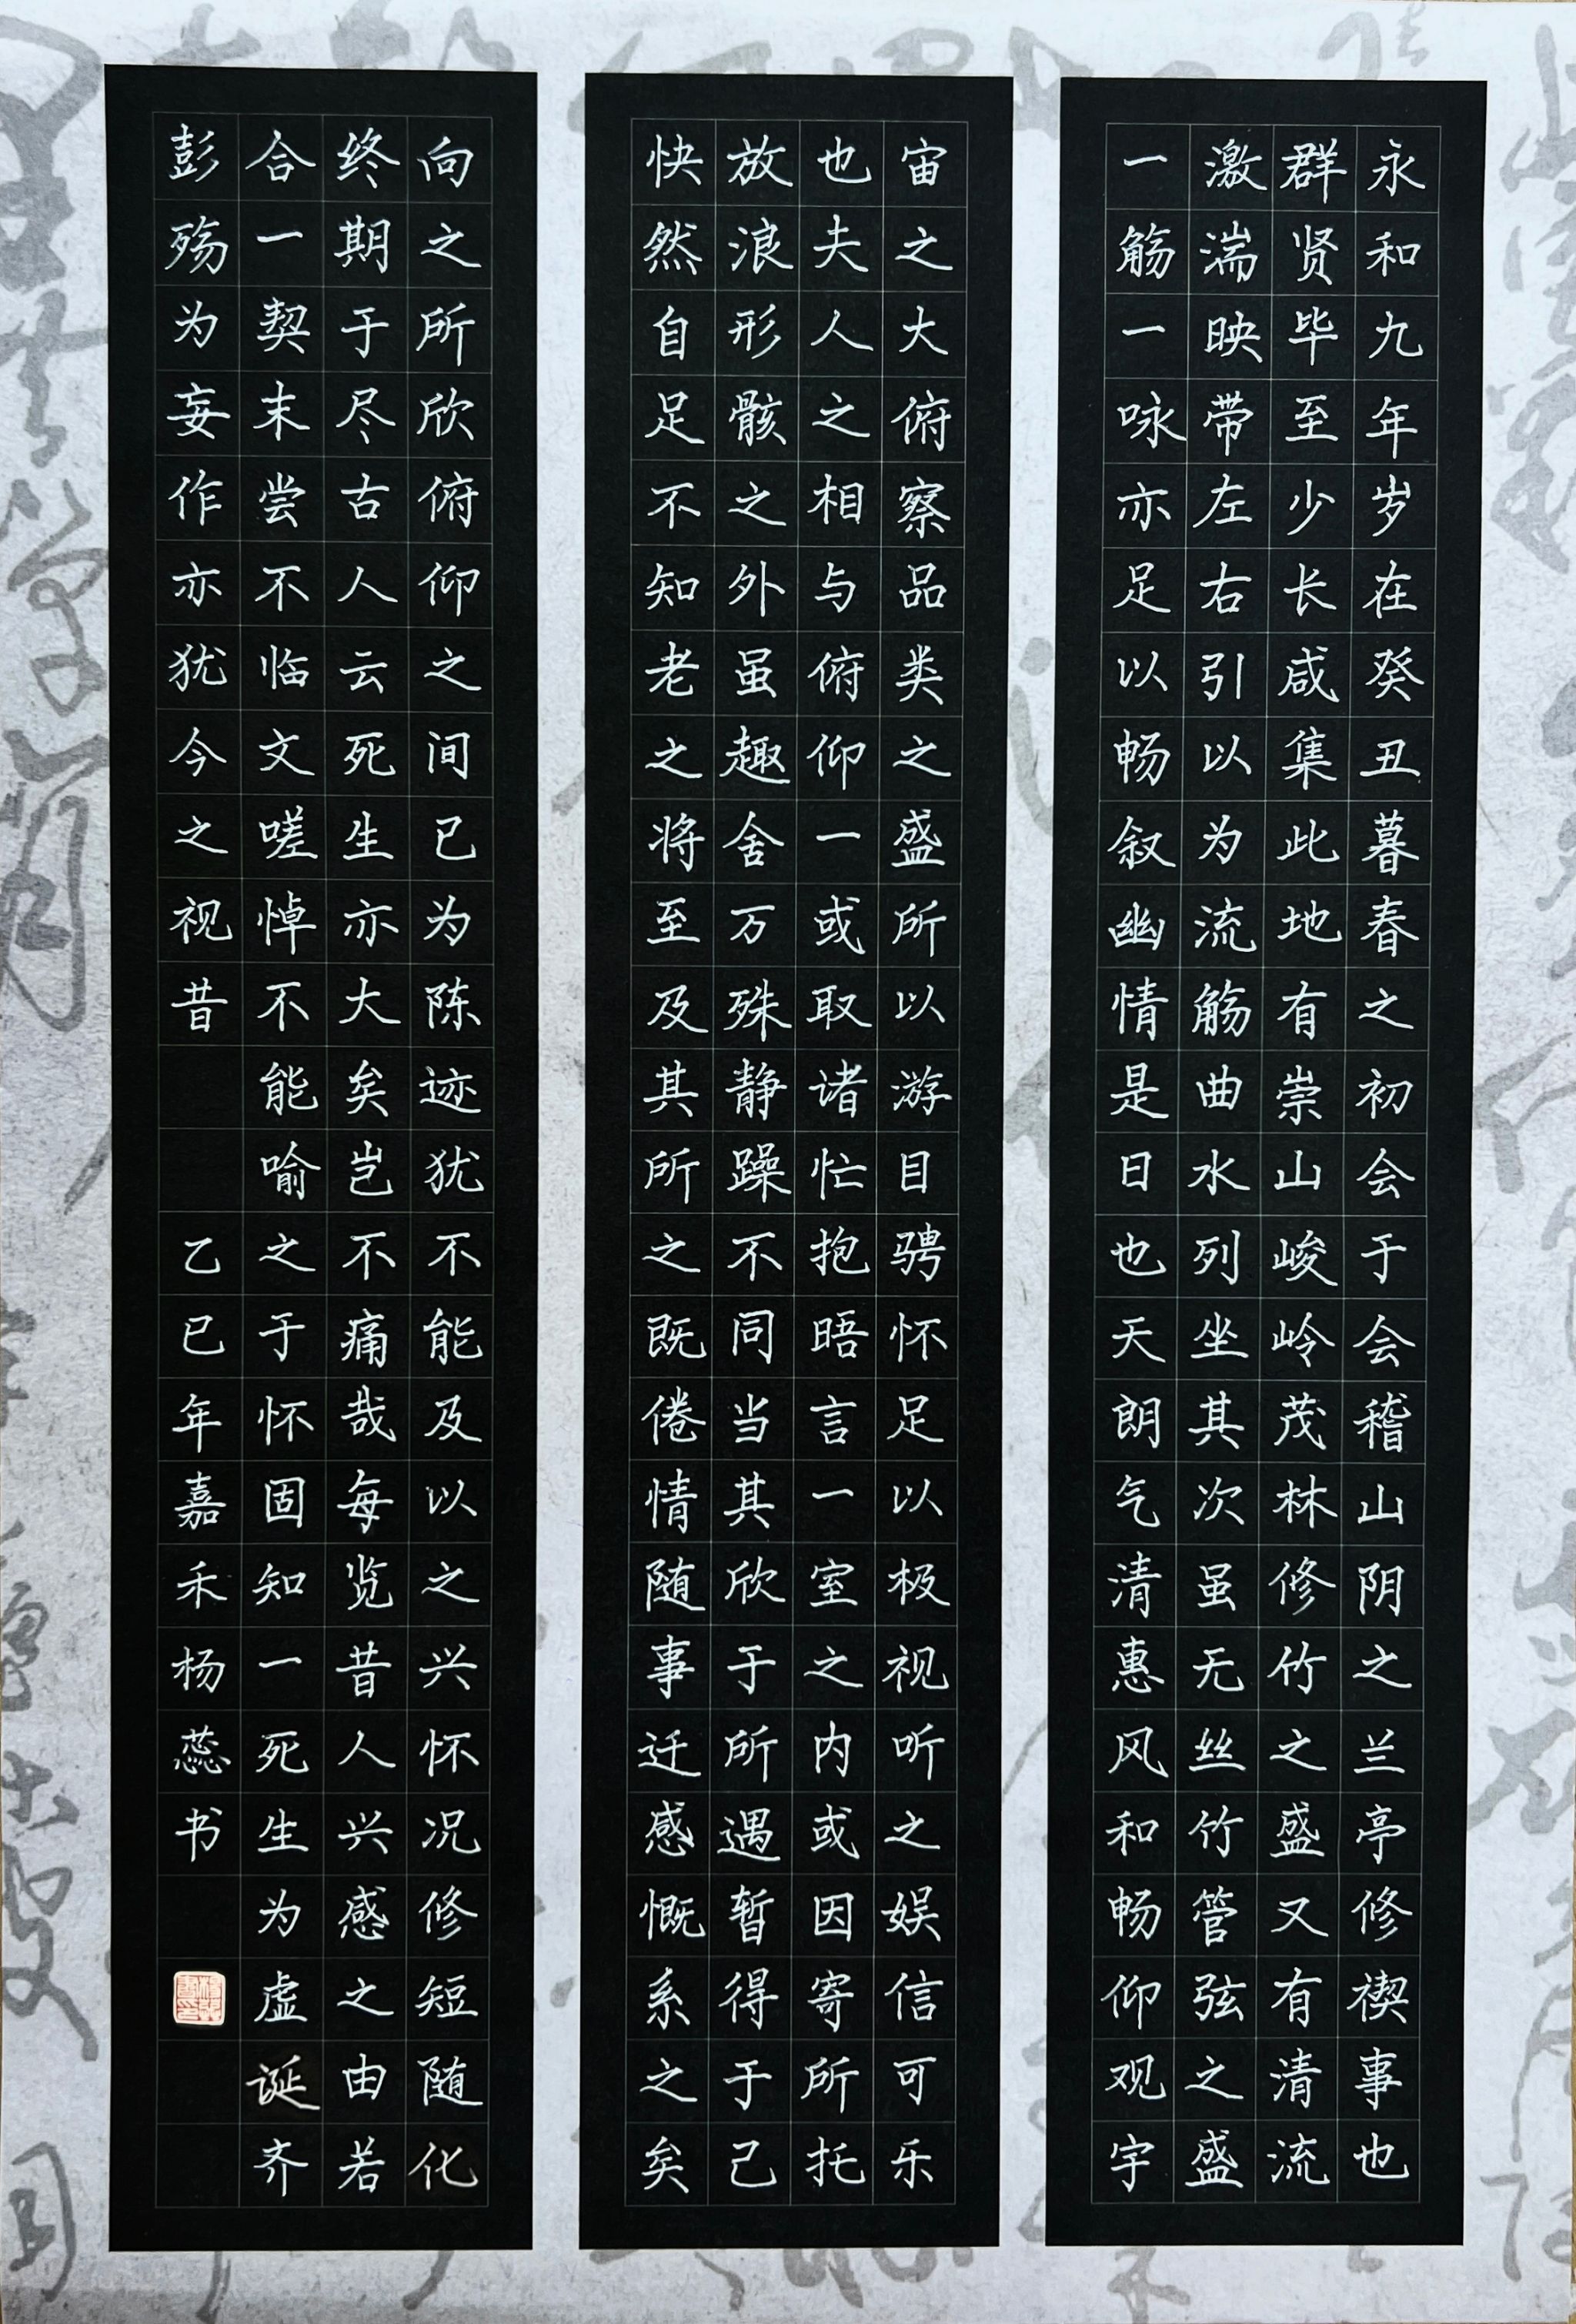 永和九年岁在癸丑暮春之初会于会稽山阴之兰亭修禊事也
群贤毕至少长咸集此地有崇山峻岭茂林修竹之盛又有清流
激湍映带左右引以为流觞曲水列坐其次虽无丝竹管弦之盛
一觞一咏亦足以畅叙幽情是日也天朗气清惠风和畅仰观宇
宙之大俯察品类之盛所以游目骋怀足以极视听之娱信可乐
也夫人之相与俯仰一或取诸忙抱晤言一室之内或因寄所托
放浪形骸之外虽趣舍万殊静躁不同当其欣于所遇暂得于己
快然自足不知老之将至及其所之既倦情随事迁感慨系之矣
向之所欣俯仰之间已为陈迹犹不能及以之兴怀况修短随化
终期于尽古人云死生亦大矣岂不痛哉每览昔人兴感之由若
合一契末尝不临文嗟悼不能喻之于怀固知一死生为虚诞齐
彭殇为妄作亦犹今之视昔 乙巳年嘉禾杨蕊书